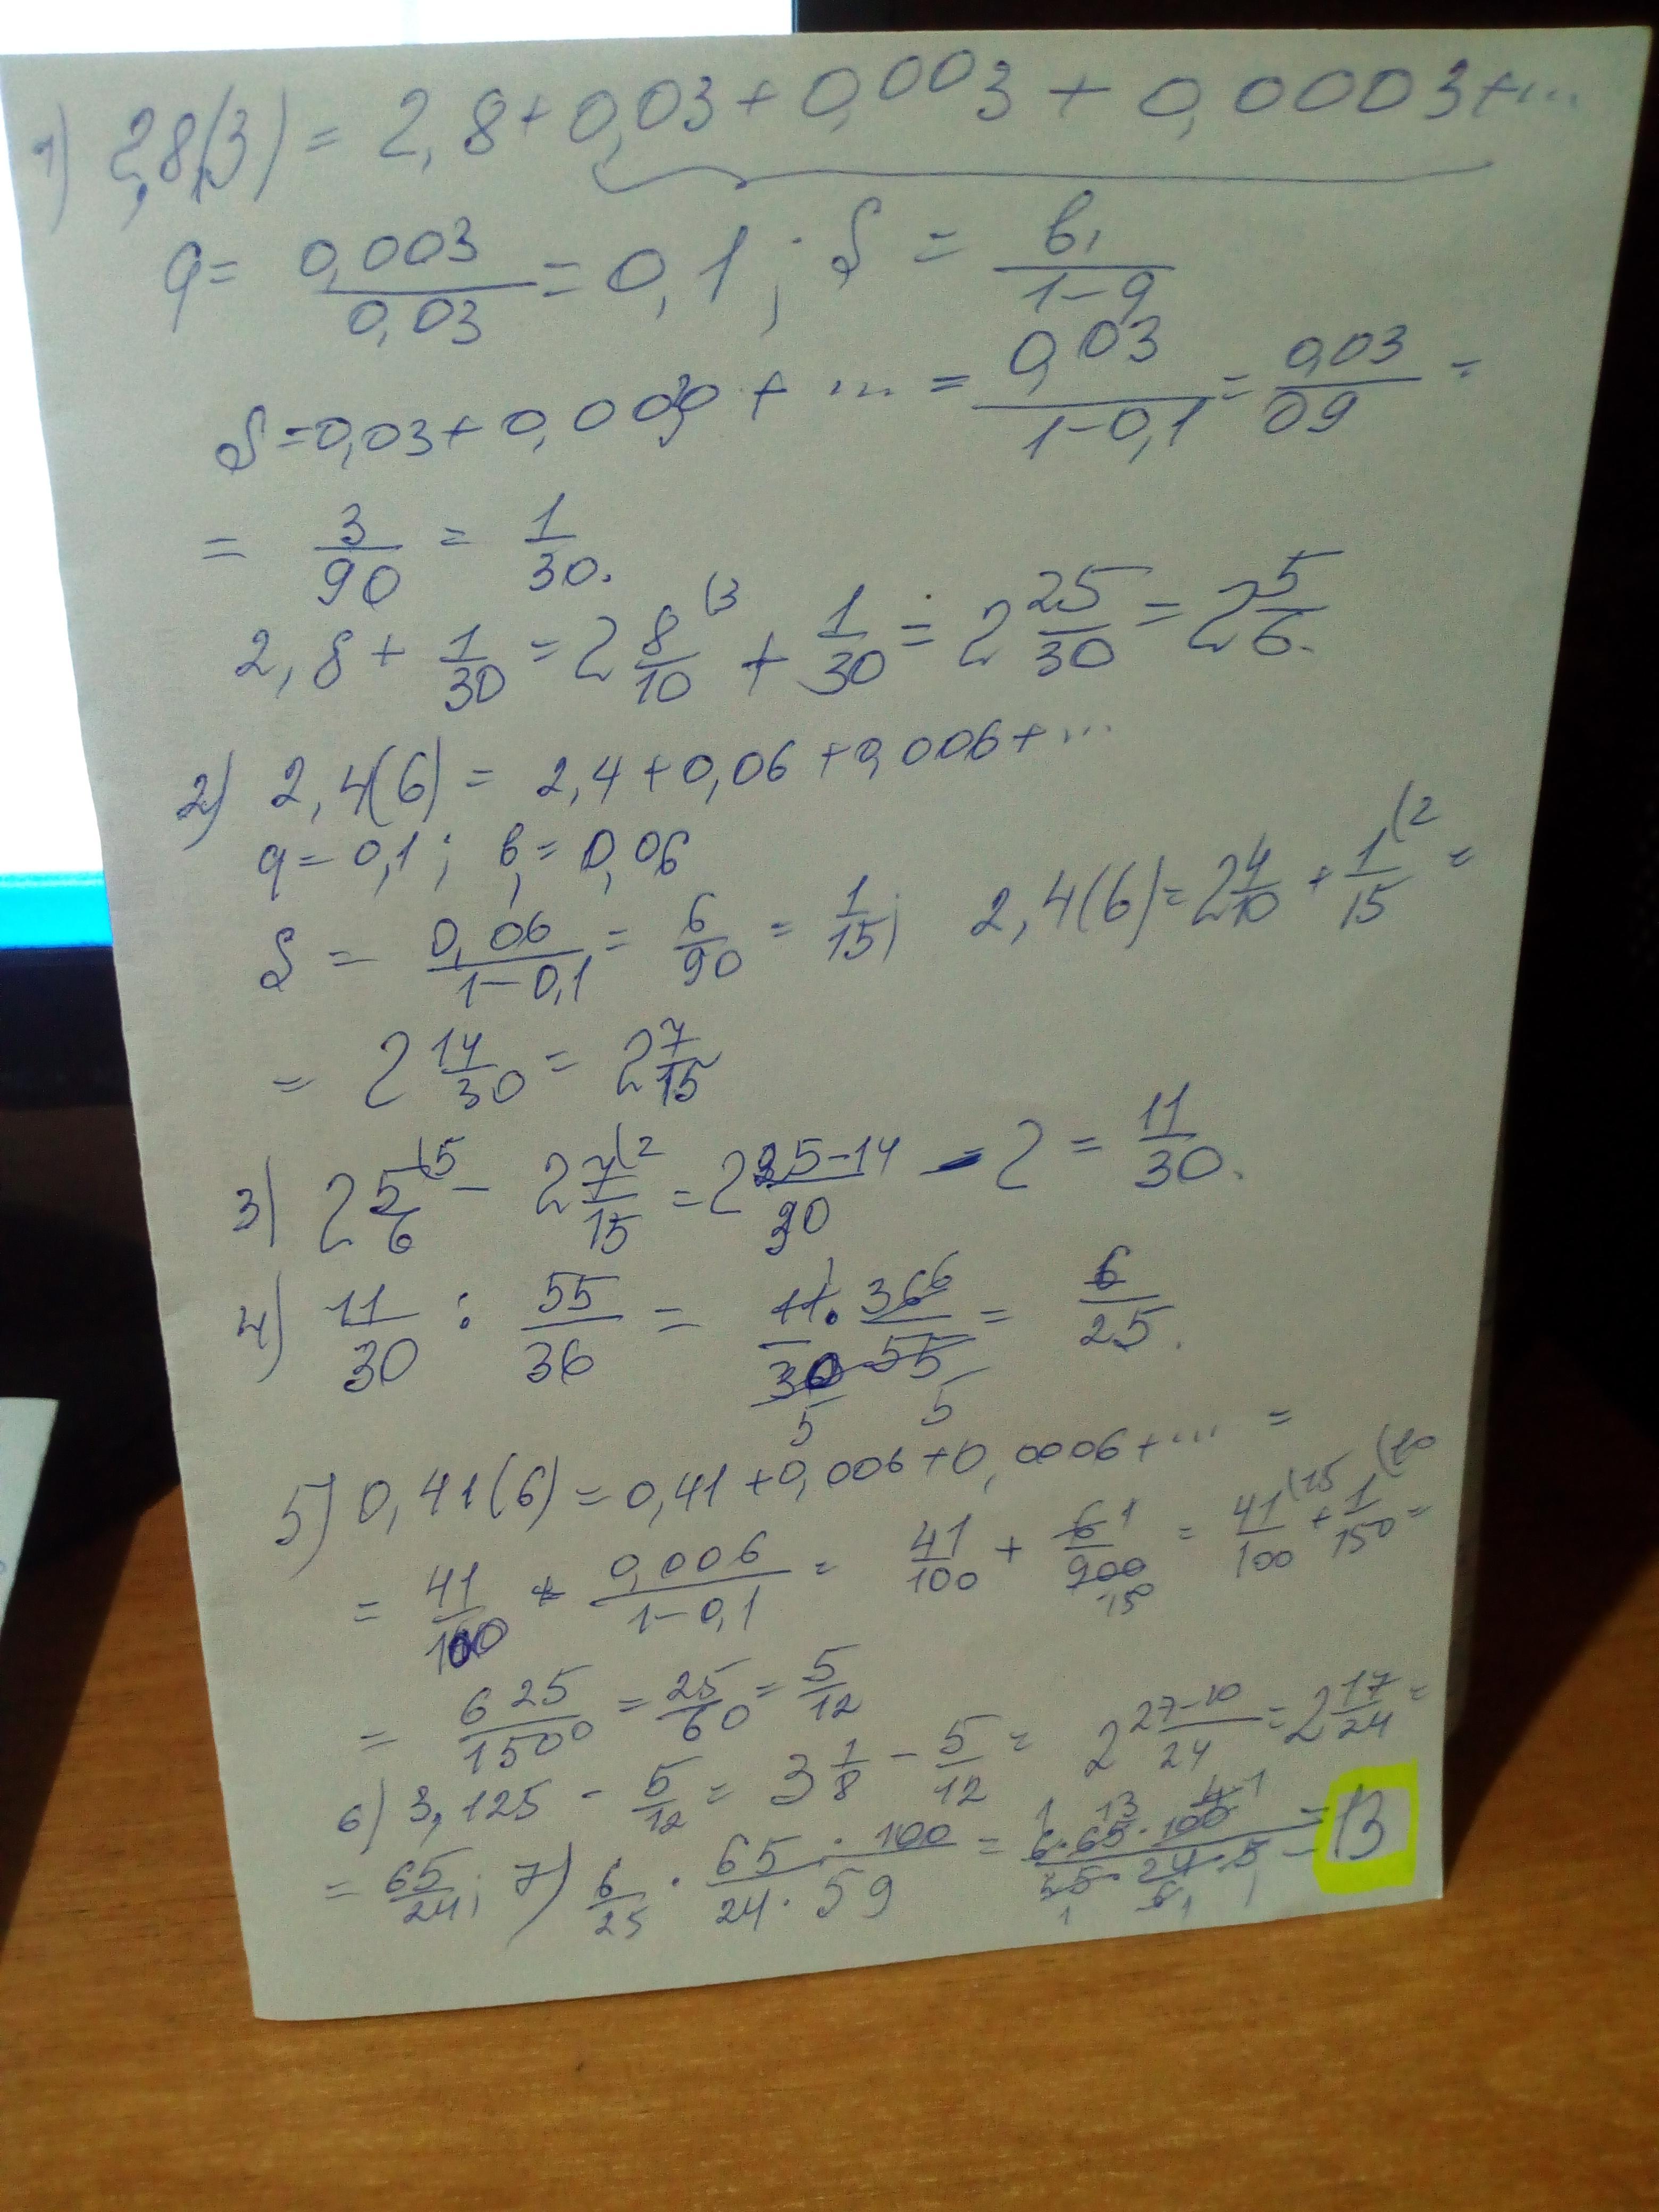 1) 2,8(3) = 2,8 + 0,03 + 0,003 + 0,0003 + ...
q = 0,003/0,03 = 0,1 ; S = b₁/(1-q)
S = 0,03 + 0,003 + ... = 0,03/(1-0,1) = 0,03/09 =
= 3/90 = 1/30.
2,8 + 1/30 = 2 8/10 (3 + 1/30 = 2 25/30 = 2 5/6.
2) 2,4(6) = 2,4 + 0,06 + 0,006 + ...
q = 0,1 ; b₁ = 0,06
S = 0,06/(1-0,1) = 6/90 = 1/15 ; 2,4(6) = 2 4/10 + 1/15 (2 =
= 2 14/30 = 2 7/15
3) 2 5/6 (5 - 2 7/15 (2 = 2 25-14/30 - 2 = 11/30.
4) 11/30 : 55/36 = 11 1 · 36 6/30 5 55 5 = 6/25.
5) 0,41(6) = 0,41 + 0,006 + 0,0006 + ... =
= 41/100 + 0,006/(1-0,1) = 41/100 + 6 1/900 150 = 41/100 (15 + 1/150 (10 =
= 625/1500 = 25/60 = 5/12
6) 3,125 - 5/12 = 3 1/8 - 5/12 = 2 27-10/24 = 2 17/24 =
= 65/24 ; 7) 6/25 · 65 · 100/24 · 59 = 13